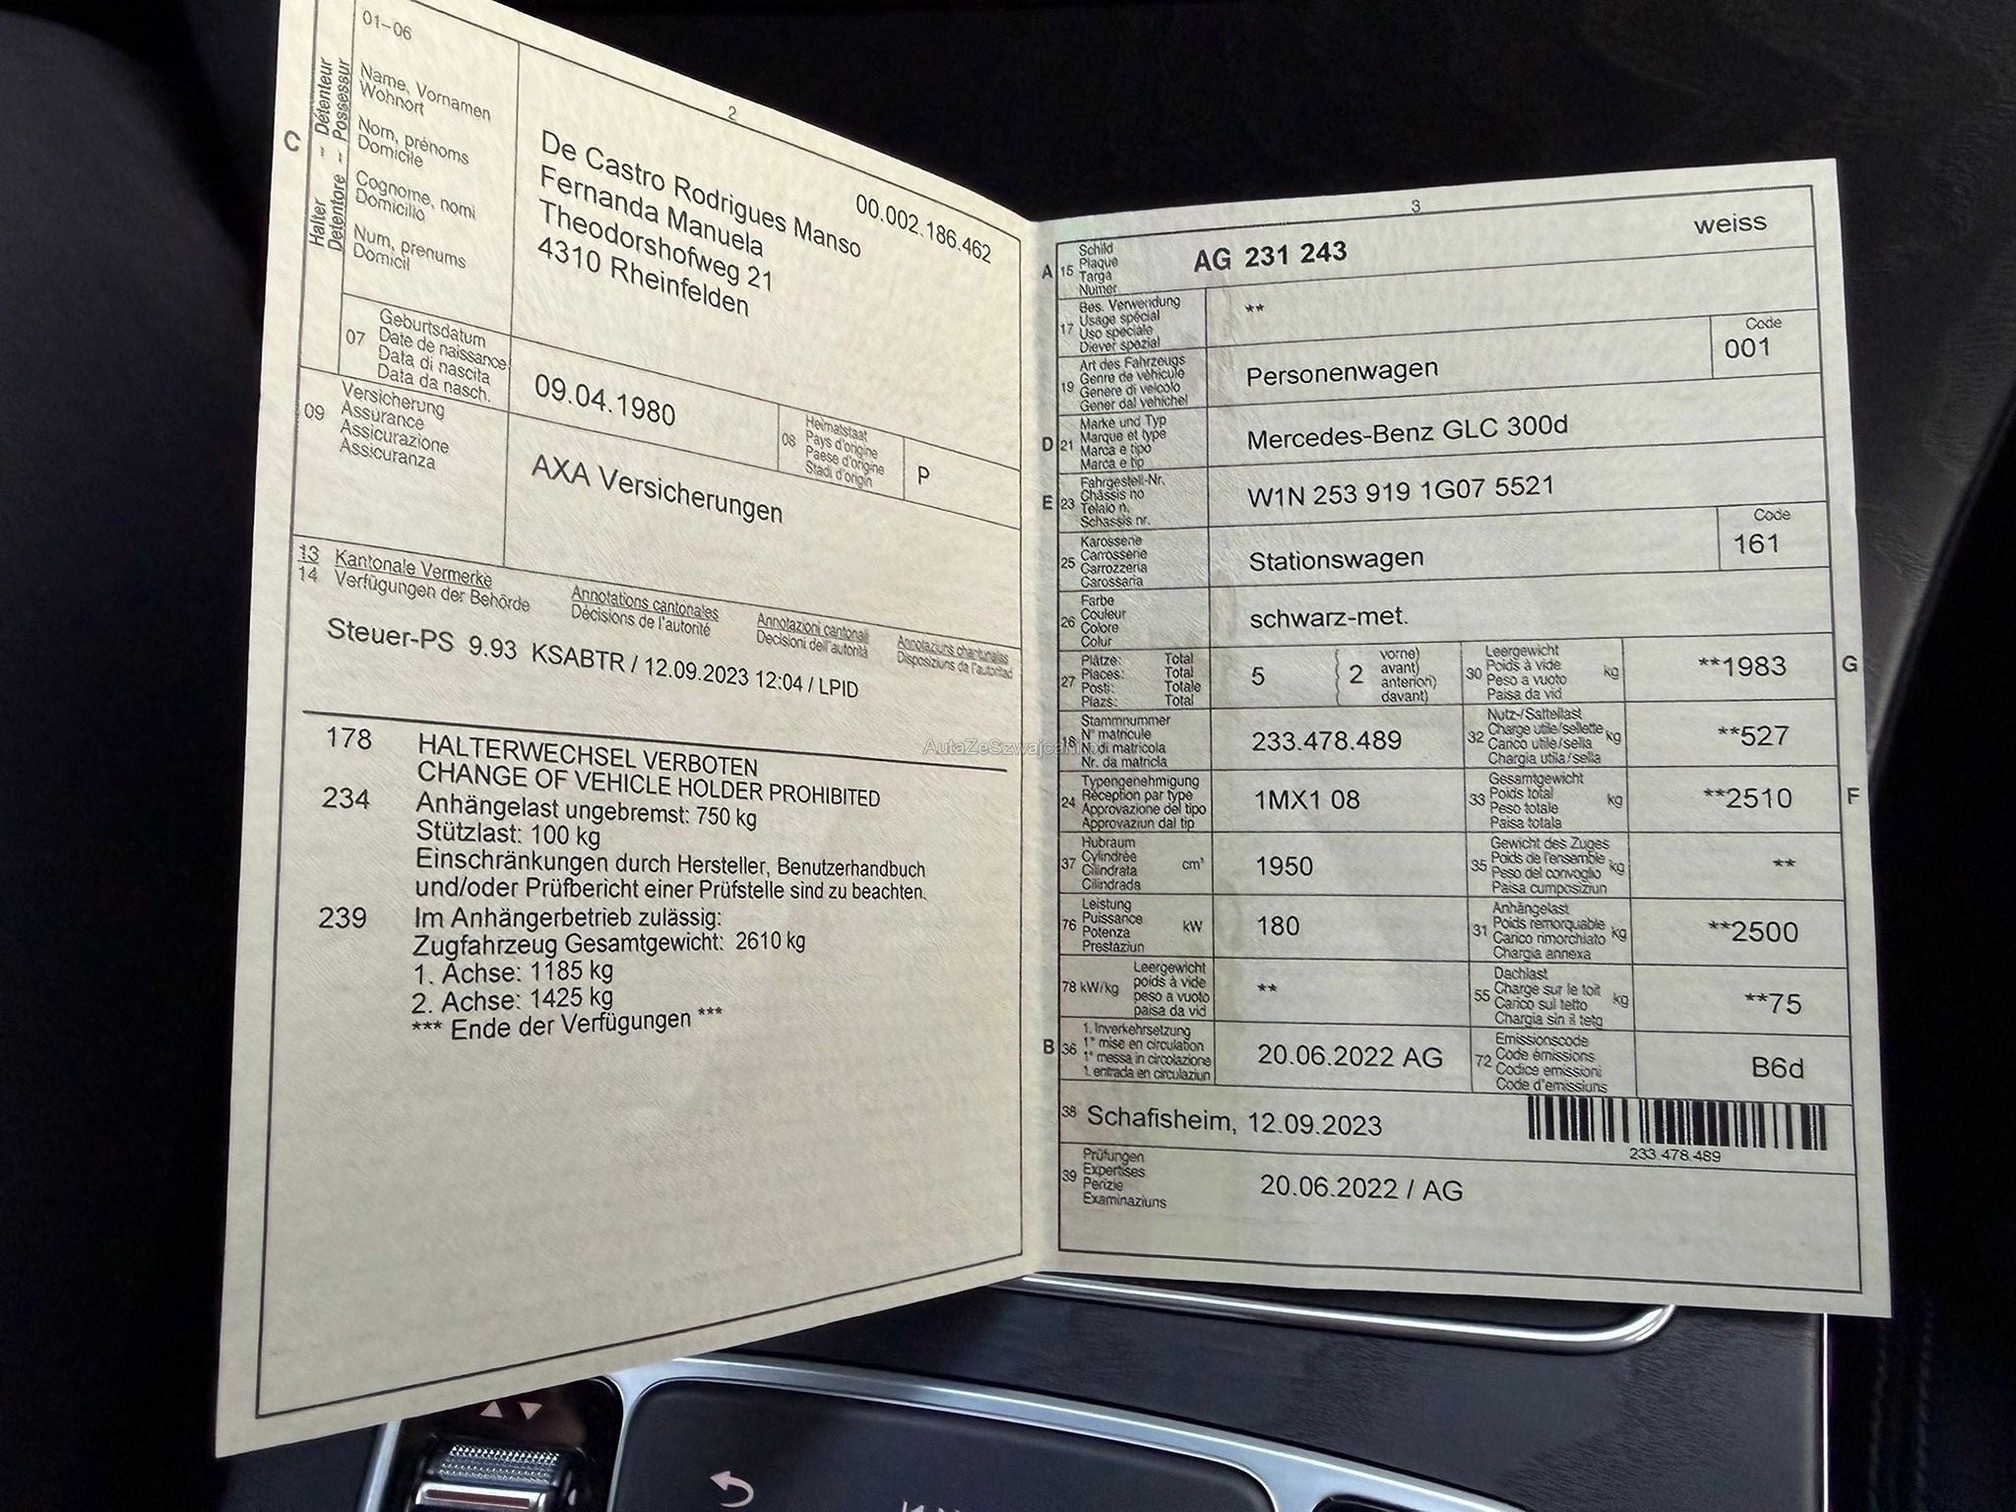 2
01-06
C
Halter – Détenteur
Detentore – Possessur
Name, Vornamen
Wohnort
Nom, prénoms
Domicile
Cognome, nomi
Domicilio
Num, prenums
Domicil
00.002.186.462
De Castro Rodrigues Manso
Fernanda Manuela
Theodorshofweg 21
4310 Rheinfelden
07
Geburtsdatum
Date de naissance
Data di nascita
Data da nasch.
09.04.1980
08
Heimatstaat
Pays d'origine
Paese d'origine
Stadi d'origin
P
09
Versicherung
Assurance
Assicurazione
Assicuranza
AXA Versicherungen
13 Kantonale Vermerke
14 Verfügungen der Behörde
Annotations cantonales
Décisions de l'autorité
Annotazioni cantonali
Decisioni dell'autorità
Annotaziuns chantunalas
Disposiziuns da l'autoritad
Steuer-PS 9.93 KSABTR / 12.09.2023 12:04 / LPID
178 HALTERWECHSEL VERBOTEN
CHANGE OF VEHICLE HOLDER PROHIBITED
234 Anhängelast ungebremst: 750 kg
Stützlast: 100 kg
Einschränkungen durch Hersteller, Benutzerhandbuch
und/oder Prüfbericht einer Prüfstelle sind zu beachten.
239 Im Anhängerbetrieb zulässig:
Zugfahrzeug Gesamtgewicht: 2610 kg
1. Achse: 1185 kg
2. Achse: 1425 kg
*** Ende der Verfügungen ***
AutaZeSzwajcarii
3
A 15
Schild
Plaque
Targa
Numer
AG 231 243
weiss
17
Bes. Verwendung
Usage spécial
Uso speciale
Diever spezial
**
19
Art des Fahrzeugs
Genre de véhicule
Genere di veicolo
Gener dal vehichel
Personenwagen
Code
001
D 21
Marke und Typ
Marque et type
Marca e tipo
Marca e tip
Mercedes-Benz GLC 300d
E 23
Fahrgestell-Nr.
Châssis no
Telaio n.
Schassis nr.
W1N 253 919 1G07 5521
25
Karosserie
Carrosserie
Carrozzeria
Carossaria
Stationswagen
Code
161
26
Farbe
Couleur
Colore
Colur
schwarz-met.
27
Plätze: Total
Places: Total
Posti: Totale
Plazs: Total
5
2
vorne)
avant)
anteriori)
davant)
30
Leergewicht
Poids à vide
Peso a vuoto
Paisa da vid
kg
**1983
G
18
Stammnummer
N° matricule
N. di matricola
Nr. da matricla
233.478.489
32
Nutz-/Sattellast
Charge utile/sellette
Carico utile/sella
Chargia utila/sella
kg
**527
24
Typengenehmigung
Réception par type
Approvazione del tipo
Approvaziun dal tip
1MX1 08
33
Gesamtgewicht
Poids total
Peso totale
Paisa totala
kg
**2510
F
37
Hubraum
Cylindrée
Cilindrata
Cilindrada
cm³
1950
35
Gewicht des Zuges
Poids de l'ensemble
Peso del convoglio
Paisa cumposiziun
kg
**
76
Leistung
Puissance
Potenza
Prestaziun
kW
180
31
Anhängelast
Poids remorquable
Carico rimorchiato
Chargia annexa
kg
**2500
78 kW/kg
Leergewicht
poids à vide
peso a vuoto
paisa da vid
**
55
Dachlast
Charge sur le toit
Carico sul tetto
Chargia sin il tetg
kg
**75
B 36
1. Inverkehrsetzung
1° mise en circulation
1° messa in circolazione
1. entrada en circulaziun
20.06.2022 AG
72
Emissionscode
Code émissions
Codice emissioni
Code d'emissiuns
B6d
38 Schafisheim, 12.09.2023
233.478.489
39
Prüfungen
Expertises
Perizie
Examinaziuns
20.06.2022 / AG